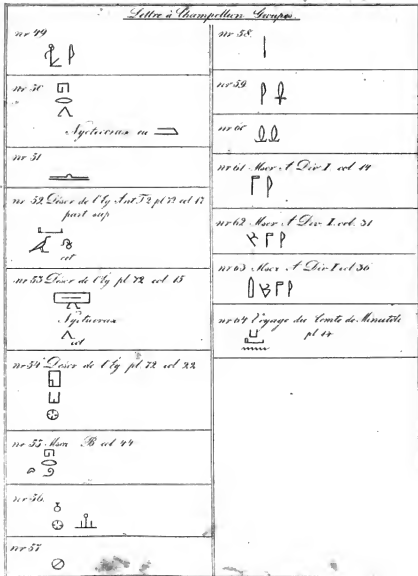 Lettre à Champollion Groupes.
nr 49
nr 50
Nycticorax ou
nr 51
nr 52 Descr de l'Eg Ant T2 pl 72 col 17
part sup
nr 53 Descr de l'Eg pl 72 col 15
Nycticorax
nr 54 Descr de l'Eg pl. 72 col 22
nr 55 Mscr B col 44
nr 56
nr 57
nr 58
nr 59
nr 60
nr 61 Mscr A Div I col 14
nr 62 Mscr A Div I col. 31
nr 63 Mscr A Div I col 36
nr 64 Voyage du Comte de Minutoli
pl 14